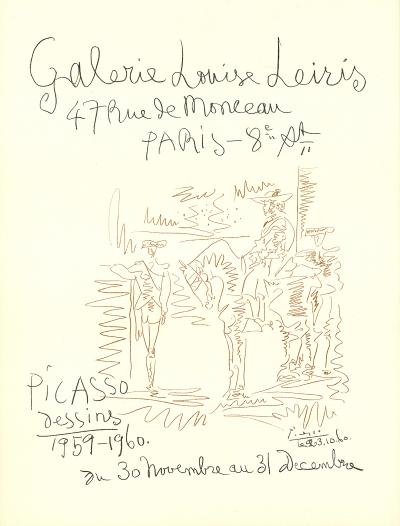 Galerie Louise Leiris
47 Rue de Monceau
PARIS-8e Art
PiCASSO
dessins
1959-1960.
du 30 Novembre au 31 Decembre
Picasso
le 3.10.60.